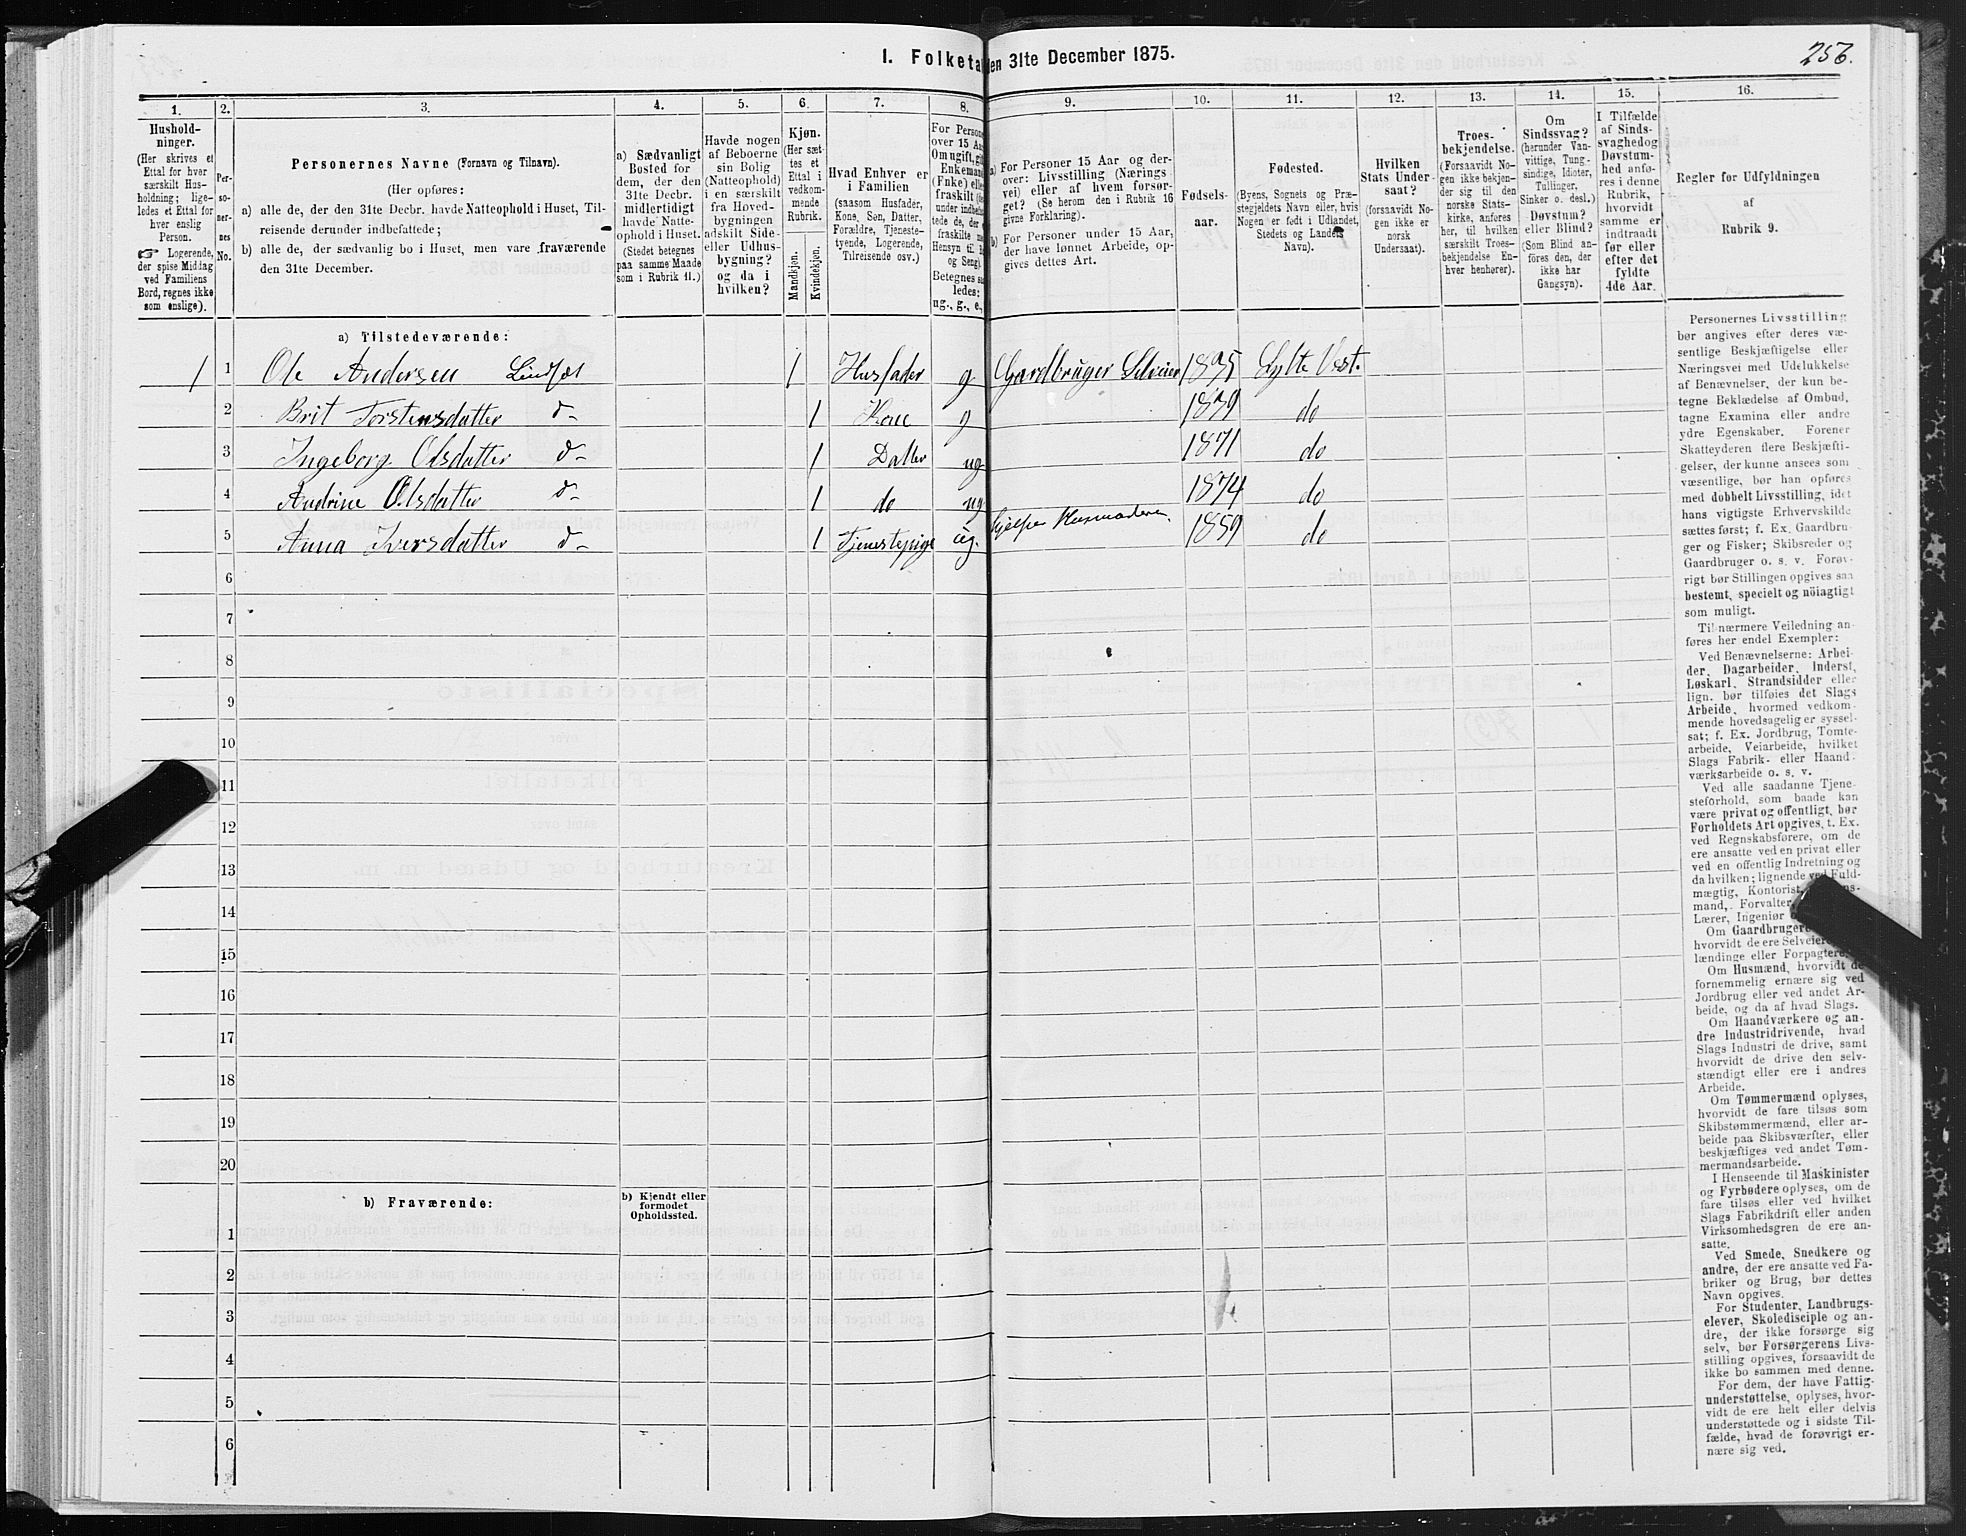 256.
I. Folketal den 31te December 1875.
1. 2. 3. 4. 5. 6. 7. 8. 9. 10. 11. 12. 13. 14. 15. 16.
Hushold-
ninger.
(Her skrives et
Ettal for hver
særskilt Hus-
holdning; lige-
ledes et Ettal for
hver enslig
Person.
☞ Logerende,
der spise Middag
ved Familiens
Bord, regnes ikke
som enslige).
Per-
so-
ner-
nes
No.
Personernes Navne (Fornavn og Tilnavn).
(Her opføres:
a) alle de, der den 31te Decbr. havde Natteophold i Huset, Til-
reisende derunder indbefattede;
b) alle de, der sædvanlig bo i Huset, men vare fraværende
den 31te December.
a) Sædvanligt
Bosted for
dem, der den
31te Decbr.
midlertidigt
havde Natte-
ophold i Huset.
(Stedet betegnes
paa samme Maade
som i Rubrik 11.)
Havde nogen
af Beboerne
sin Bolig
(Natteophold)
i en særskilt
fra Hoved-
bygningen
adskilt Side-
eller Udhus-
bygning?
og da i
hvilken?
Kjøn.
(Her sæt-
tes et
Ettal i
vedkom-
mende
Rubrik.
Mandkjøn.
Kvindekjøn.
Hvad Enhver er
i Familien
(saasom Husfader,
Kone, Søn, Datter,
Forældre, Tjeneste-
tyende, Logerende,
Tilreisende osv.)
For Persone
over 15 Aar
Om ugift, gif
Enkemand
(Enke) elle
fraskilt
under indbefat-
tede de, der
fraskilte
Hensyn til
og Seng).
Betegnes saa
ledes:
ug., g., e.,
a) For Personer 15 Aar og der-
over: Livsstilling (Nærings-
vei) eller af hvem forsør-
get? (Se herom den i Rubrik 16
givne Forklaring).
b) For Personer under 15 Aar,
der have lønnet Arbeide, op-
gives dettes Art.
Fødsels-
aar.
Fødested.
(Byens, Sognets og Præ-
stegjeldets Navn eller, hvis
Nogen er født i Udlandet,
Stedets og Landets
Navn).
Hvilken
Stats Under-
saat?
(forsaavidt No-
gen ikke er
norsk
Undersaat).
Troes-
bekjendelse.
(Forsaavidt No-
gen ikke bekjen-
der sig til den
norske Stats-
kirke, anføres
her, til hvilken
særskilt Troes-
bekjendelse En-
hver henhører).
Om
Sindssvag?
(herunder Van-
vittige, Tung-
sindige, Idioter,
Tullinger,
Sinker o. desl.)
Døvstum?
eller Blind?
(Som Blind an-
føres den, der
ikke har
Gangsyn).
I Tilfælde
af Sinds-
svaghed og
Døvstum-
hed anfø-
res i denne
Rubrik,
hvorvidt
samme er
indtraadt
før eller
efter det
fyldte
4de Aar.
Regler for Udfyldningen
af
Rubrik 9.
a) Tilstedeværende:
1 1 Ole Andersen Lindset 1 Husfader g Gaardbruger Selveier 1835 Lytte Vest.
2 Brit Torstensdatter d- 1 Kone g 1839 do
3 Ingeborg Olsdatter d- 1 Datter ug 1871 do
4 Andrine Olsdatter d- 1 do ug 1874 do
5 Anna Iversdatter d- 1 Tjenestepige ug. hjelper Husmoderen. 1859 do
6
7
8
9
10
11
12
13
14
15
16
17
18
19
20
b) Fraværende:
b) Kjendt eller
formodet
Opholdssted.
1
2
3
4
5
6
Personernes Livsstilling
bør angives efter deres væ-
sentlige Beskjæftigelse eller
Næringsvei med Udelukkelse
af Benævnelser, der kun be-
tegne Beklædelse af Ombud,
tagne Examina eller andre
ydre Egenskaber. Forener
Skatteyderen flere Beskjæfti-
gelser, der kunne ansees som
væsentlige, bør han opføres
med dobbelt Livsstilling, idet
hans vigtigste Erhvervskilde
sættes først; f. Ex. Gaardbru-
ger og Fisker; Skibsreder og
Gaardbruger o. s. v. Forøv-
rigt bør Stillingen opgives saa
bestemt, specielt og nöiagtigt
som muligt.
Til nærmere Veiledning an-
føres her endel Exempler:
Ved Benævnelserne: Arbei-
der, Dagarbeider, Inderst,
Løskarl, Strandsidder eller
lign. bør tilføies det Slags
Arbeide, hvormed vedkom-
mende hovedsagelig er syssel-
sat; f. Ex. Jordbrug, Tomte-
arbeide, Veiarbeide, hvilket
Slags Fabrik- eller Haand-
værksarbeide o. s. v.
Ved alle saadanne Tjene-
steforhold, som baade kan
være privat og offentligt, bør
Forholdets Art opgives, t. Ex.
ved Regnskabsførere, om de
ere ansatte ved en privat eller
ved en offentlig Indretning og
da hvilken; lignende ved Fuld-
mægtig, Kontorist,
mand, Forvalter
Lærer, Ingeniør
Om Gaardbrugere
hvorvidt de ere Selveiere,
lændinge eller Forpagtere.
Om Husmænd, hvorvidt de
fornemmelig ernære sig ved
Jordbrug eller ved andet Ar-
beide, og da af hvad Slags.
Om Haandværkere og an-
dre Industridrivende, hvad
Slags Industri de drive, samt
hvorvidt de drive den selv-
stændigt eller ere i andres
Arbeide.
Om Tømmermænd oplyses,
hvorvidt de fare tilsøs som
Skibstømmermænd, eller ar-
beide paa Skibsværfter, eller
beskjæftiges ved andet Tøm-
mermandsarbeide.
I Henseende til Maskinister
og Fyrbødere oplyses, om de
fare tilsøs eller ved hvilket
Slags Fabrikdrift eller anden
Virksomhedsgren de ere an-
satte.
Ved Smede, Snedkere og
andre, der ere ansatte ved Fa-
briker og Brug, bør dettes
Navn opgives.
For Studenter, Landbrugs-
elever, Skoledisciple og an-
dre, der ikke forsørge sig
selv, bør Forsørgerens Livs-
stilling opgives, forsaavidt de
ikke bo sammen med denne.
For dem, der have Fattig-
understøttelse, oplyses, hvor-
vidt de ere helt eller delvis
understøttede og i sidste Til-
fælde, hvad de forøvrigt er-
nære sig ved.